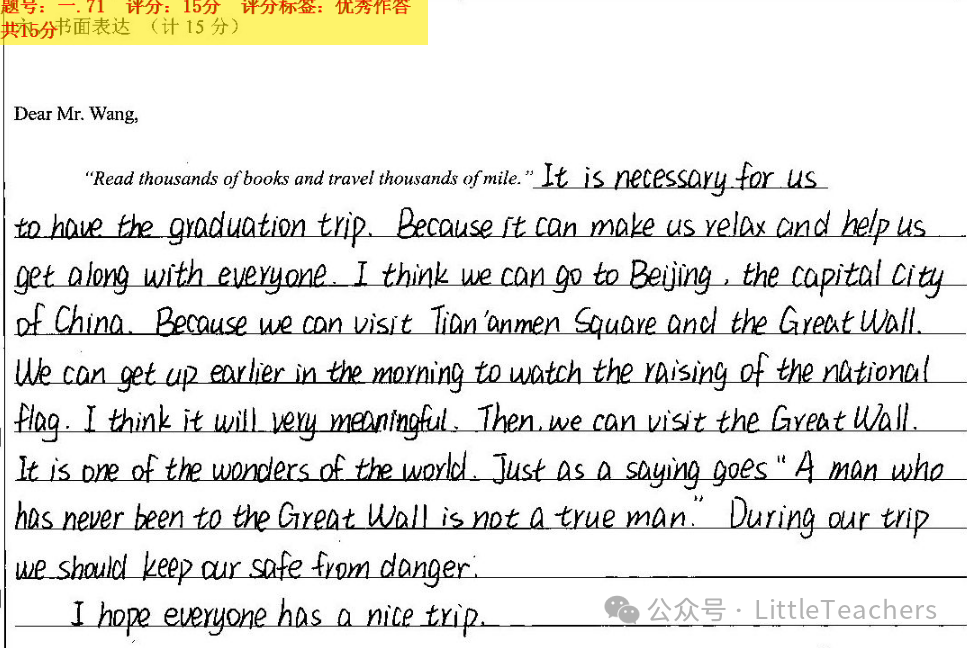 题号：一.71 评分：15分 评分标签：优秀作答
共15分 书面表达 （计 15 分）
Dear Mr. Wang,
“Read thousands of books and travel thousands of mile.” It is necessary for us
to have the graduation trip. Because it can make us relax and help us
get along with everyone. I think we can go to Beijing, the capital city
of China. Because we can visit Tian'anmen Square and the Great Wall.
We can get up earlier in the morning to watch the raising of the national
flag. I think it will very meaningful. Then, we can visit the Great Wall.
It is one of the wonders of the world. Just as a saying goes “A man who
has never been to the Great Wall is not a true man.” During our trip
we should keep our safe from danger.
I hope everyone has a nice trip.
公众号 · LittleTeachers